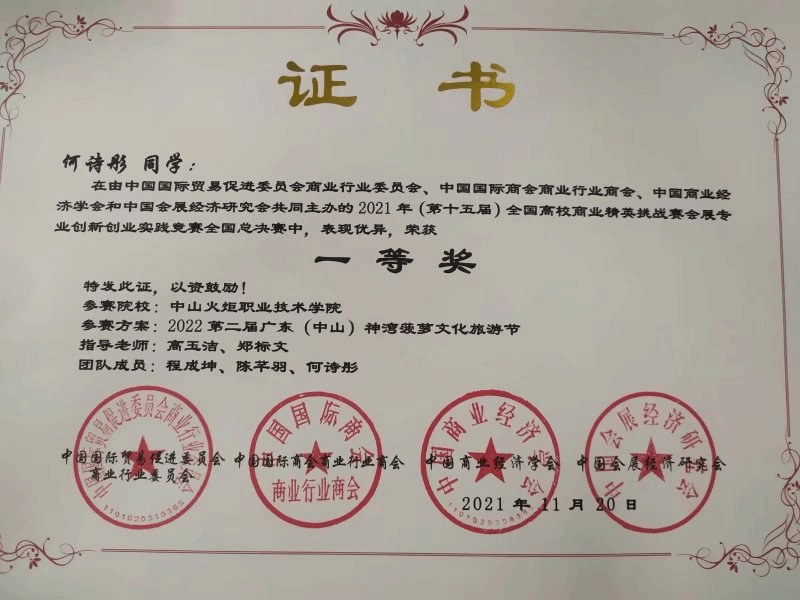 证书
何诗彤 同学：
在由中国国际贸易促进委员会商业行业委员会、中国国际商会商业行业商会、中国商业经
济学会和中国会展经济研究会共同主办的2021年（第十五届）全国高校商业精英挑战赛会展专
业创新创业实践竞赛全国总决赛中，表现优异，荣获
一等奖
特发此证，以资鼓励！
参赛院校：中山火炬职业技术学院
参赛方案：2022第二届广东（中山）神湾菠萝文化旅游节
指导老师：高玉洁、郑标文
团队成员：程成坤、陈芊羽、何诗彤
中国国际贸易促进委员会
商业行业委员会
中国国际商会商业行业商会
中国商业经济学会
中国会展经济研究会
2021年11月20日
中国国际贸易促进委员会商业行业委员会
1101020310365
中国国际商会
商业行业商会
中国商业经济学会
中国会展经济研究会